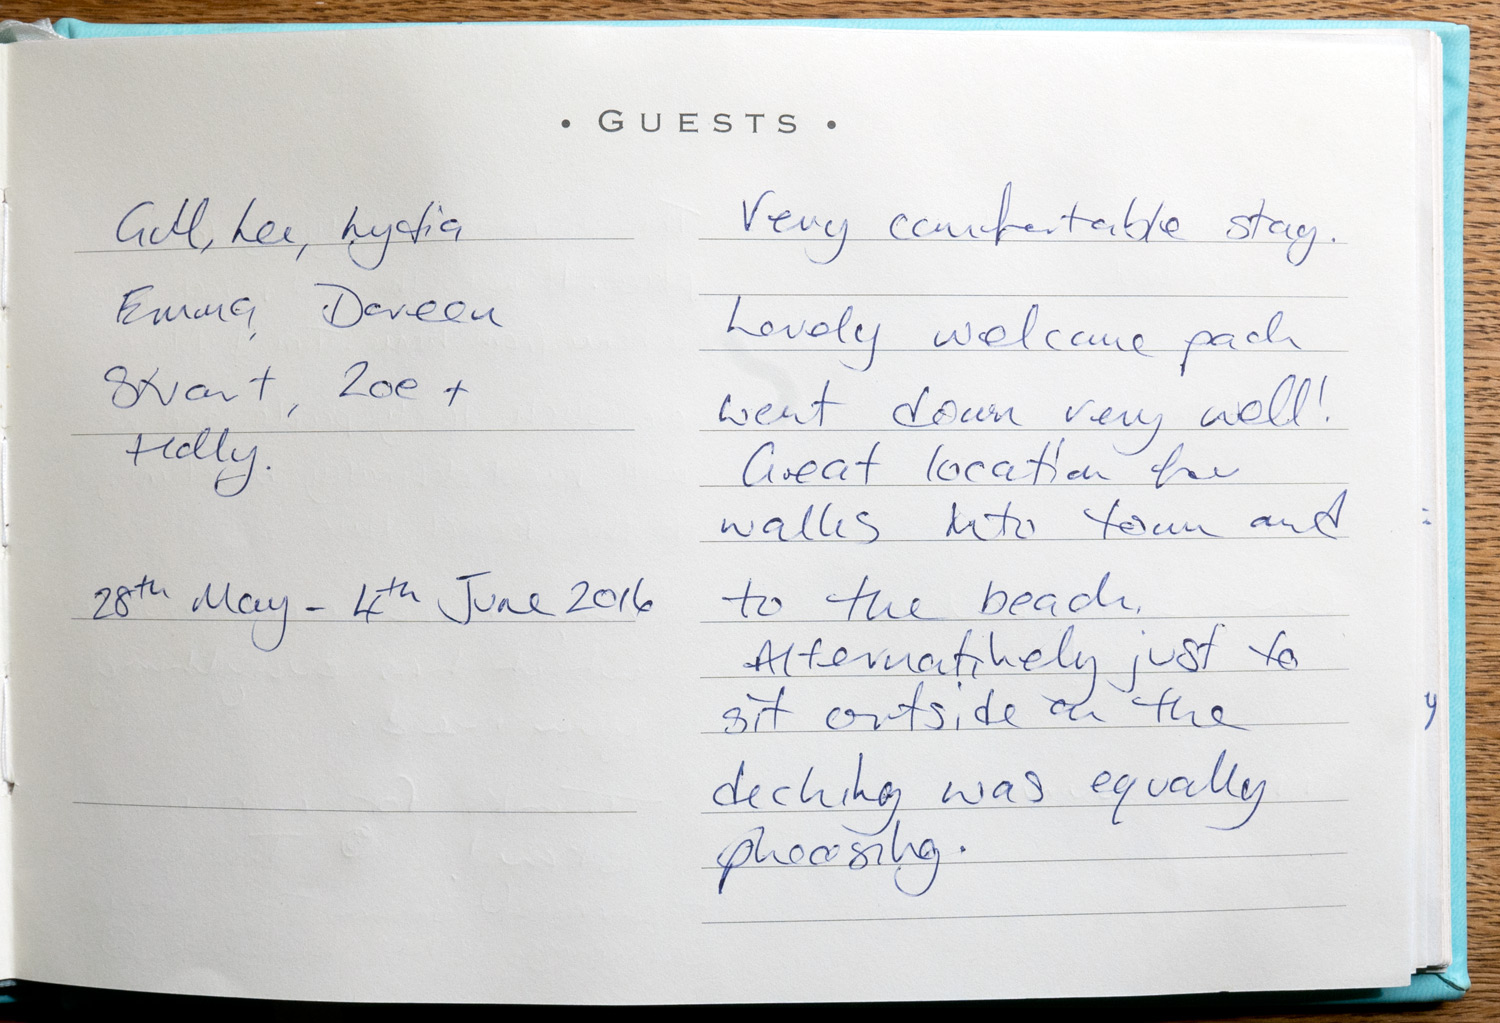 • GUESTS •
Gill, Lee, Lydia
Emma, Doreen
Stuart, Zoe +
Holly.
28th May - 4th June 2016
Very comfortable stay.
Lovely welcome pack
went down very well!
Great location for
walks into town and
to the beach.
Alternatively just to
sit outside on the
decking was equally
pleasing.
y